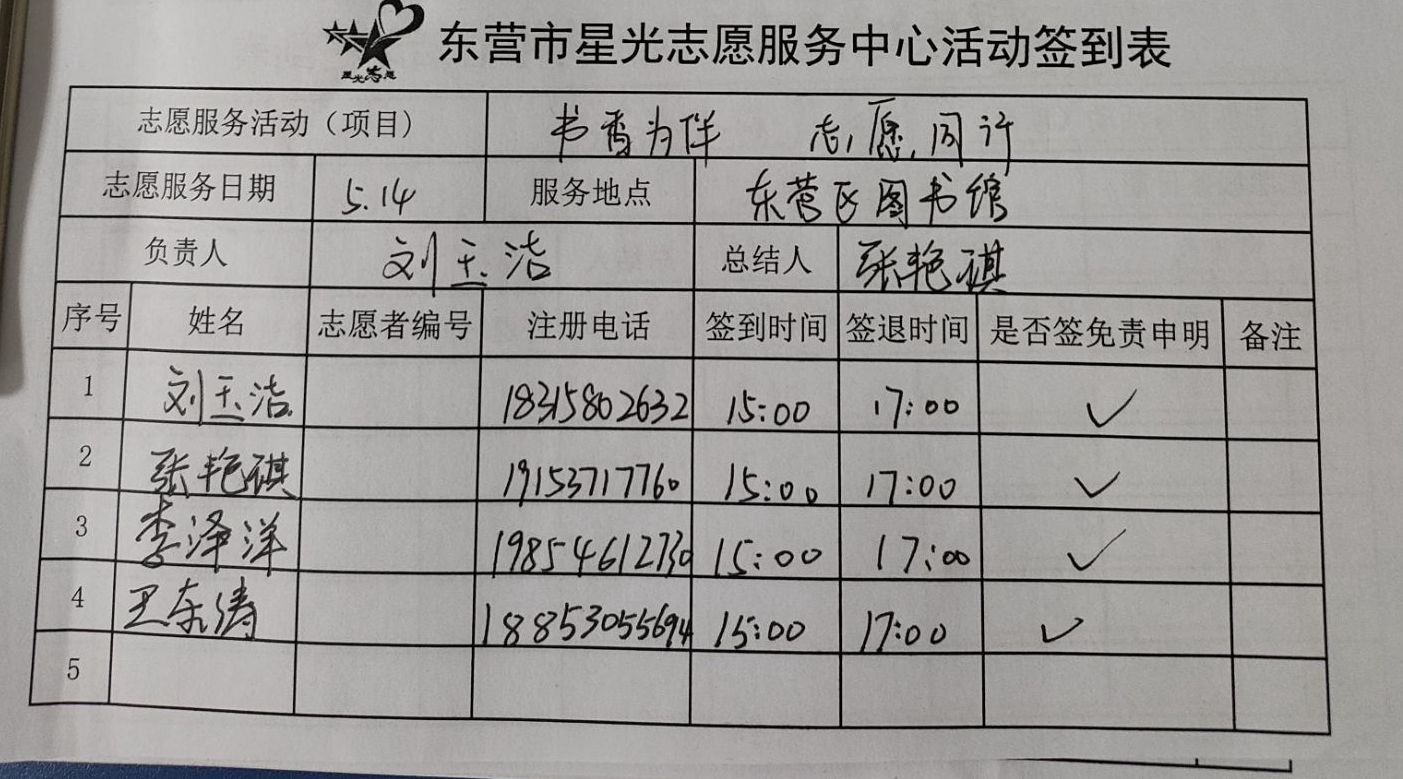 星光志愿
东营市星光志愿服务中心活动签到表
志愿服务活动（项目） 书香为伴 志愿同行
志愿服务日期 5.14 服务地点 东营区图书馆
负责人 刘玉洁 总结人 张艳祺
序号 姓名 志愿者编号 注册电话 签到时间 签退时间 是否签免责申明 备注
1 刘玉洁 18315802632 15:00 17:00 ✓
2 张艳祺 19153717760 15:00 17:00 ✓
3 李泽洋 19854612730 15:00 17:00 ✓
4 王东涛 18853055694 15:00 17:00 ✓
5